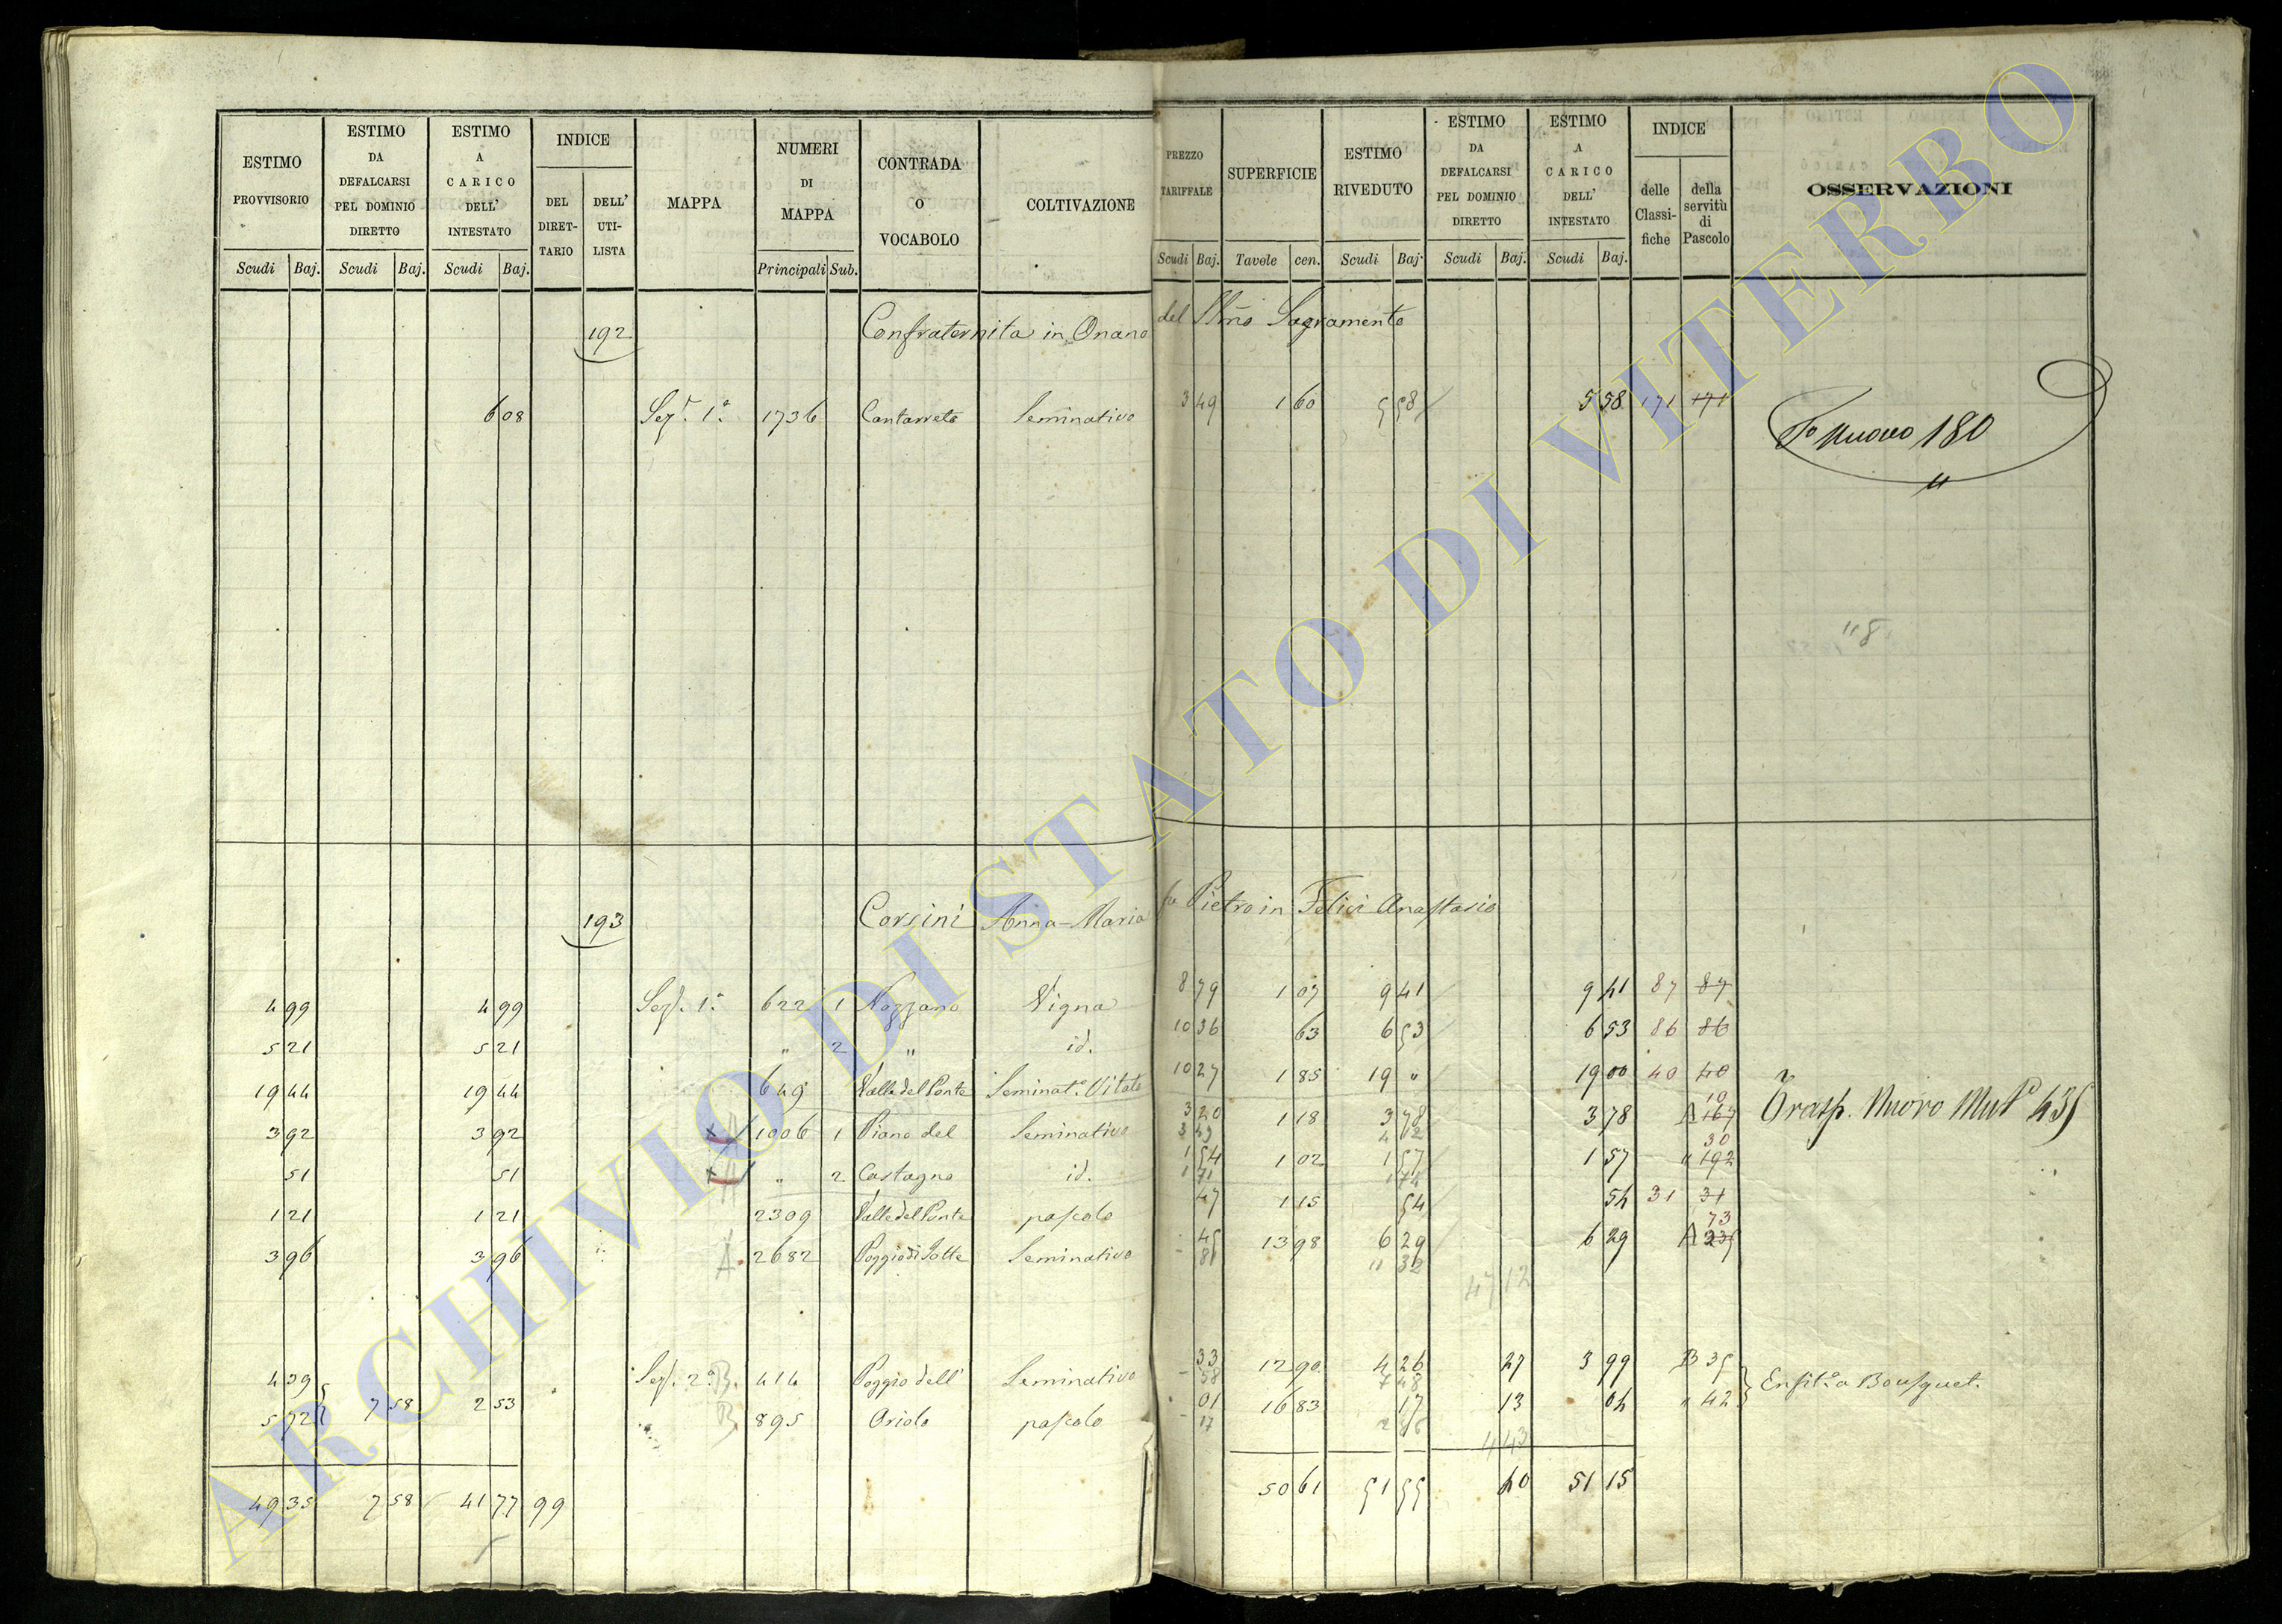 ESTIMO PROVVISORIO
ESTIMO DA DEFALCARSI PEL DOMINIO DIRETTO
ESTIMO A CARICO DELL' INTESTATO
INDICE
DEL DIRETTARIO
DELL' UTILISTA
MAPPA
NUMERI DI MAPPA
CONTRADA O VOCABOLO
COLTIVAZIONE
PREZZO TARIFFALE
SUPERFICIE
ESTIMO RIVEDUTO
ESTIMO DA DEFALCARSI PEL DOMINIO DIRETTO
ESTIMO A CARICO DELL' INTESTATO
INDICE
delle Classifiche
della servitù di Pascolo
OSSERVAZIONI
Scudi Baj. Scudi Baj. Scudi Baj. Principali Sub. Scudi Baj. Tavole cen. Scudi Baj. Scudi Baj. Scudi Baj.
192 Confraternita in Onano del SSmo Sagramento
6 08 Sez. 1a 1736 Cantarreto Seminativo 3 49 1 60 5 58 5 58 171 171
Fo nuovo 180
"8
193 Corsini Anna-Maria fu Pietro in Felici Anastasio
4 99 4 99 Sez. 1a 622 1 Nozzano Vigna 8 79 1 07 9 41 9 41 87 87
5 21 5 21 " 2 " id. 10 36 63 6 53 6 53 86 86
19 44 19 44 649 Valle del Ponte Seminato Vitato 10 27 1 85 19 " 19 00 40 40
3 92 3 92 1006 1 Piano del Seminativo 3 20 1 18 3 78 3 78 A 167 10
3 49 4 12
Trasp. Nuovo Muto 435
51 51 " 2 Castagno id. 1 54 1 02 1 57 1 57 " 192 30
1 71 1 74
1 21 1 21 2309 Valle del Ponte pascolo 47 1 15 54 54 31 31
3 96 3 96 A. 2682 Poggio di Sotte Seminativo 45 13 98 6 29 6 29 A 235 73
81 11 32
47 12
4 39 Sez. 2a B. 414 Poggio dell' Seminativo 33 12 90 4 26 27 3 99 B 35
58 7 48
7 58 2 53
5 72 B. 895 Oriolo pascolo 01 16 83 17 13 04 " 42
17 2 86
Enfita Bousquet.
4 43
49 35 7 58 41 77 99 50 61 51 55 40 51 15
ARCHIVIO DI STATO DI VITERBO